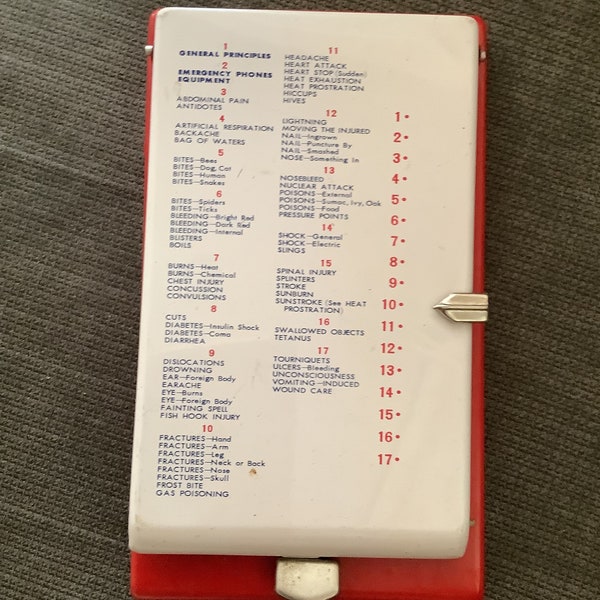 1
GENERAL PRINCIPLES
2
EMERGENCY PHONES
EQUIPMENT
3
ABDOMINAL PAIN
ANTIDOTES
4
ARTIFICIAL RESPIRATION
BACKACHE
BAG OF WATERS
5
BITES—Bees
BITES—Dog, Cat
BITES—Human
BITES—Snakes
6
BITES—Spiders
BITES—Ticks
BLEEDING—Bright Red
BLEEDING—Dark Red
BLEEDING—Internal
BLISTERS
BOILS
7
BURNS—Heat
BURNS—Chemical
CHEST INJURY
CONCUSSION
CONVULSIONS
8
CUTS
DIABETES—Insulin Shock
DIABETES—Coma
DIARRHEA
9
DISLOCATIONS
DROWNING
EAR—Foreign Body
EARACHE
EYE—Burns
EYE—Foreign Body
FAINTING SPELL
FISH HOOK INJURY
10
FRACTURES—Hand
FRACTURES—Arm
FRACTURES—Leg
FRACTURES—Neck or Back
FRACTURES—Nose
FRACTURES—Skull
FROST BITE
GAS POISONING
11
HEADACHE
HEART ATTACK
HEART STOP (Sudden)
HEAT EXHAUSTION
HEAT PROSTRATION
HICCUPS
HIVES
12
LIGHTNING
MOVING THE INJURED
NAIL—Ingrown
NAIL—Puncture By
NAIL—Smashed
NOSE—Something In
13
NOSEBLEED
NUCLEAR ATTACK
POISONS—External
POISONS—Sumac, Ivy, Oak
POISONS—Food
PRESSURE POINTS
14
SHOCK—General
SHOCK—Electric
SLINGS
15
SPINAL INJURY
SPLINTERS
STROKE
SUNBURN
SUNSTROKE (See HEAT
PROSTRATION)
16
SWALLOWED OBJECTS
TETANUS
17
TOURNIQUETS
ULCERS—Bleeding
UNCONSCIOUSNESS
VOMITING—INDUCED
WOUND CARE
1•
2•
3•
4•
5•
6•
7•
8•
9•
10•
11•
12•
13•
14•
15•
16•
17•